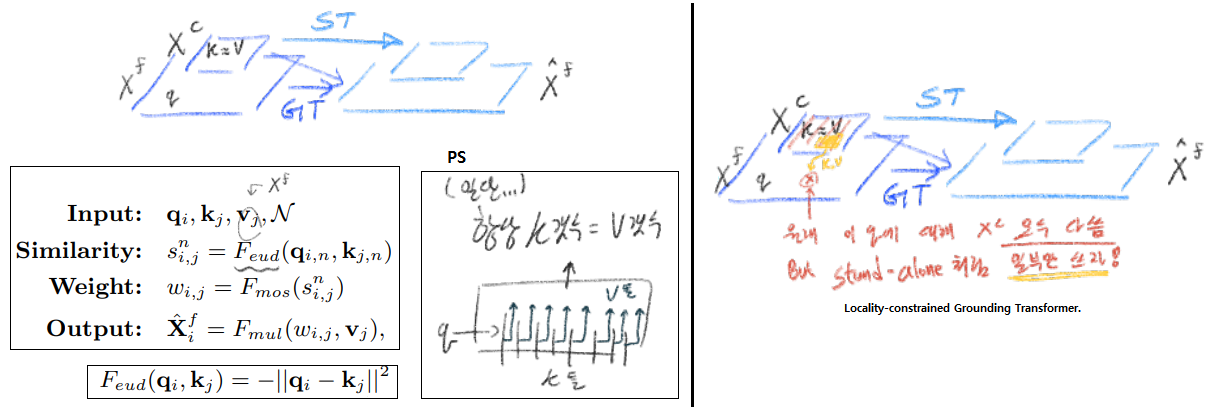 ST
X^c
K=V
X^f
q
GT
X̂^f
PS
↙ X^f
Input: q_i, k_j, v_j, 𝒩
Similarity: s^n_{i,j} = F_{eud}(q_{i,n}, k_{j,n})
Weight: w_{i,j} = F_{mos}(s^n_{i,j})
Output: X̂^f_i = F_{mul}(w_{i,j}, v_j),
F_{eud}(q_i, k_j) = −||q_i − k_j||^2
(일단...)
항상 K갯수 = V갯수
V들
q
K들
ST
X^c
K=V
K,V
X^f
q
GT
X̂^f
원래 이 에 대해 X^c 모두 다씀
But stand-alone 처럼 일부만 쓰자!
Locality-constrained Grounding Transformer.